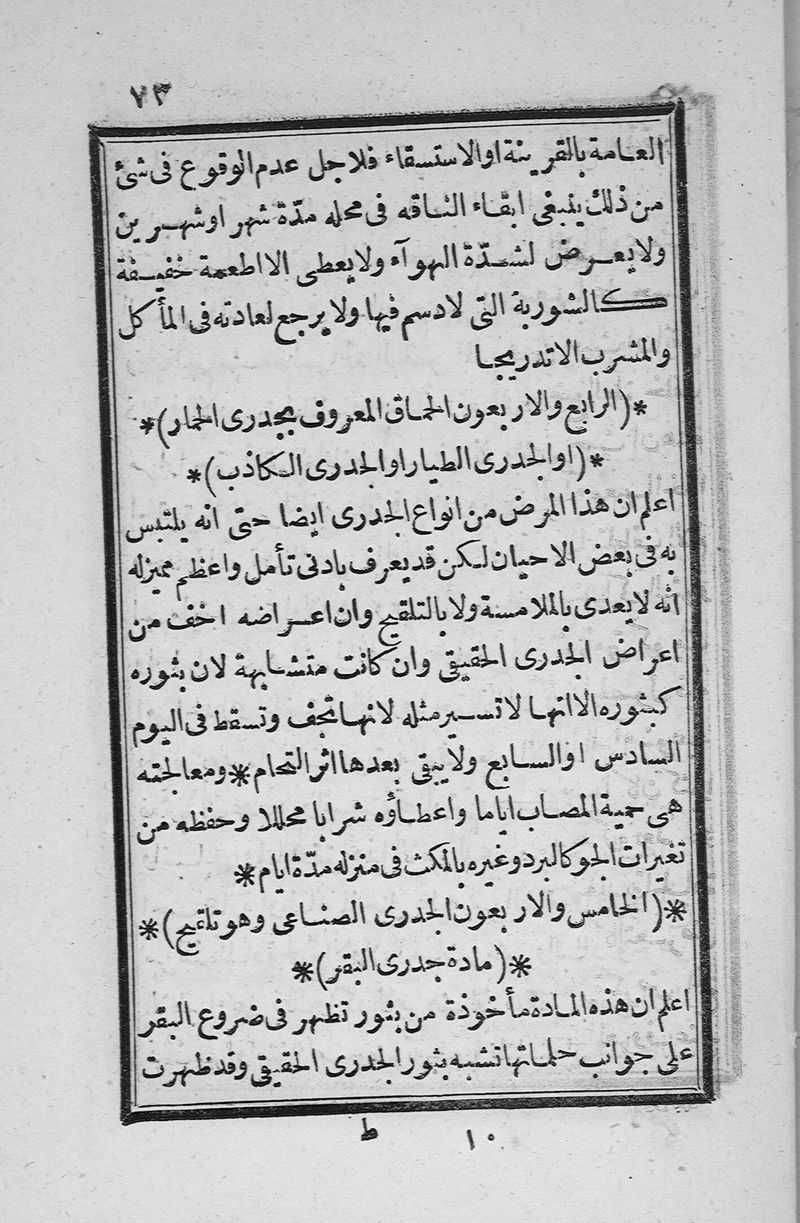 ٧٣
العامة بالقرينة او الاستسقاء فلاجل عدم الوقوع فى شئ
من ذلك ينبغى ابقاء الناقه فى محله مدّة شهر او شهرين
ولا يعرض لشدّة الهوآء ولا يعطى الا اطعمة خفيفة
كالشوربة التى لا دسم فيها ولا يرجع لعادته فى المأكل
والمشرب الا تدريجا
*(الرابع والاربعون الحماق المعروف بجدرى الحمار)*
*(او الجدرى الطيار او الجدرى الكاذب)*
اعلم ان هذا المرض من انواع الجدرى ايضا حتى انه يلتبس
به فى بعض الاحيان لكن قد يعرف بادنى تأمل واعظم مميزله
انه لا يعدى بالملامسة ولا بالتلقيح وان اعراضه اخف من
اعراض الجدرى الحقيقى وان كانت متشابهة لان بثوره
كبثوره الا انها لا تسير مثله لانها تجف وتسقط فى اليوم
السادس او السابع ولا يبقى بعدها اثر التحام * ومعالجته
هى حمية المصاب اياما واعطاؤه شرابا محللا وحفظه من
تغيرات الجو كالبرد وغيره بالمكث فى منزله مدّة ايام *
*(الخامس والاربعون الجدرى الصناعى وهو تلقيح)*
*(مادة جدرى البقر)*
اعلم ان هذه المادة مأخوذة من بثور تظهر فى ضروع البقر
على جوانب حلماتها تشبه بثور الجدرى الحقيقى وقد ظهرت
١٠ ط